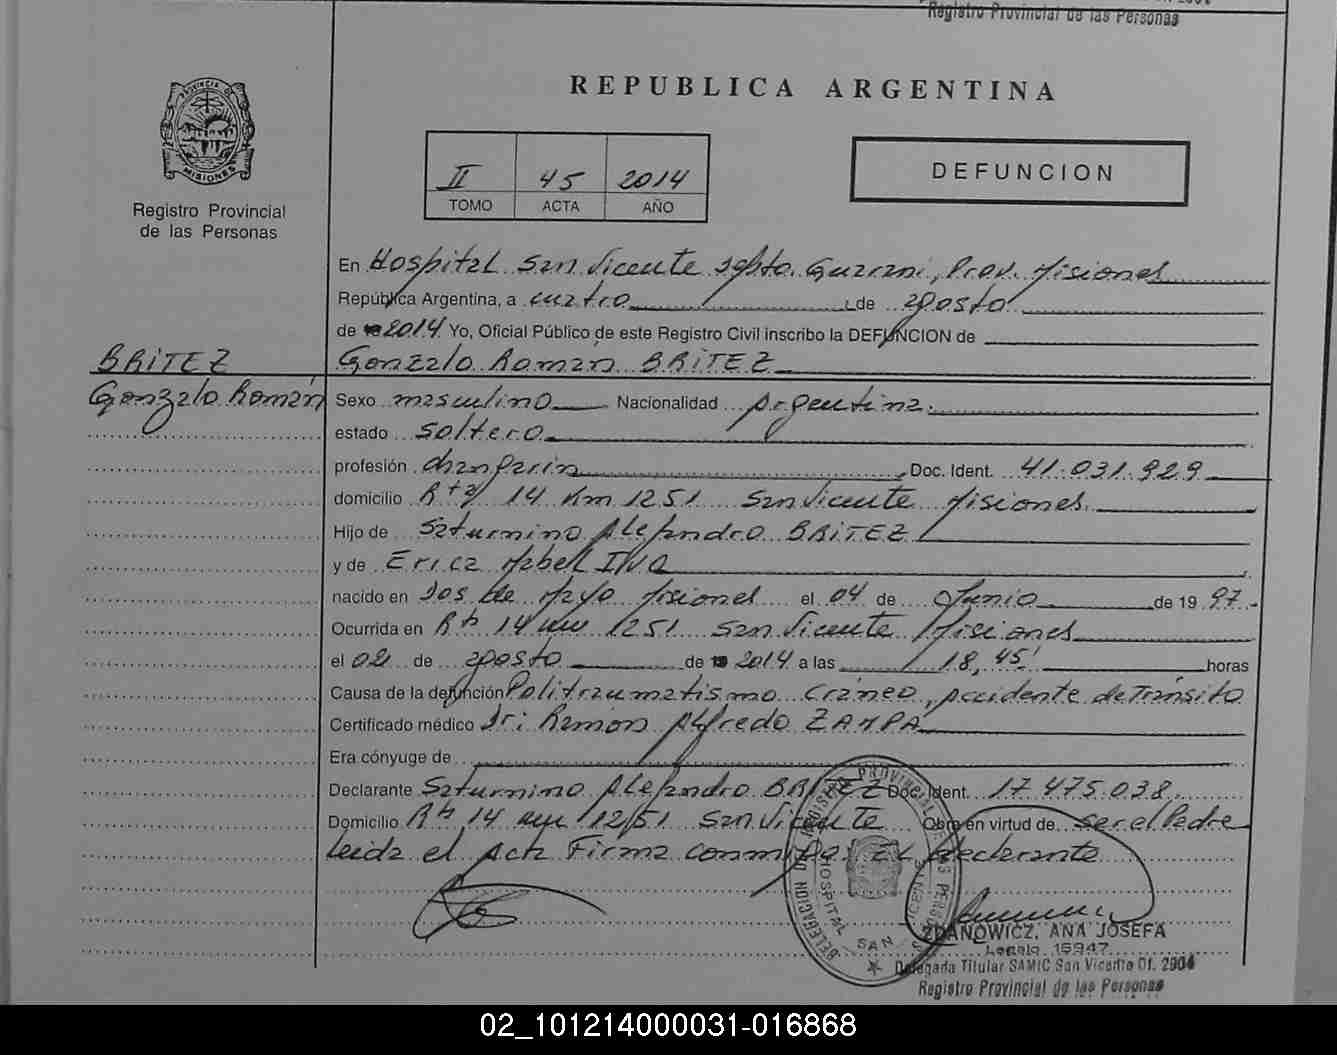 Registro Provincial de las Personas
REPUBLICA ARGENTINA
PROVINCIA DE
MISIONES
Registro Provincial
de las Personas
II 45 2014
TOMO ACTA AÑO
DEFUNCION
En Hospital San Vicente Dpto. Guarani, Prov. Misiones
República Argentina, a cuatro de agosto
de 2014 Yo, Oficial Público de este Registro Civil inscribo la DEFUNCION de
BRITEZ
Gonzalo Román
Gonzalo Roman BRITEZ
Sexo masculino Nacionalidad Argentina.
estado Soltero
profesión changarin Doc. Ident. 41.031.929
domicilio Rta 14 Km 1251 San Vicente Misiones.
Hijo de Saturnino Alejandro BRITEZ
y de Erica Mabel
nacido en Dos de Mayo Misiones el 04 de Junio de 1997.
Ocurrida en Rta 14 km 1251 San Vicente Misiones
el 02 de agosto de 2014 a las 18,45' horas
Causa de la defunción Politraumatismo Cráneo, Accidente de Tránsito
Certificado médico Dr: Ramon Alfredo ZAMPA
Era cónyuge de
Declarante Saturnino Alejandro BRITEZ Doc. Ident. 17.475.038.
Domicilio Rta 14 km 1251 San Vicente Obra en virtud de ser el Padre
leida el Acta Firma conmigo El declarante
DELEGACION REGISTRO PROVINCIAL DE LAS PERSONAS
HOSPITAL SAN VICENTE
ZDANOWICZ, ANA JOSEFA
Legajo 15947
Delegada Titular SAMIC San Vicente Of. 2904
Registro Provincial de las Personas
02_101214000031-016868